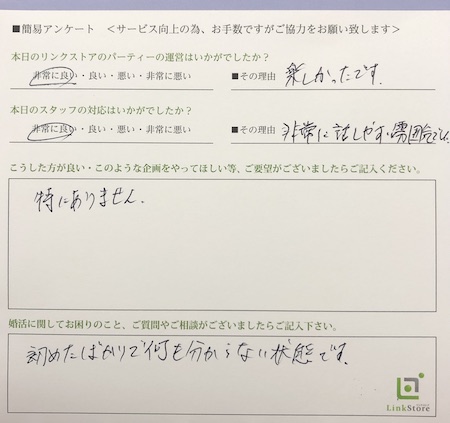 ■簡易アンケート ＜サービス向上の為、お手数ですがご協力をお願い致します＞
本日のリンクストアのパーティーの運営はいかがでしたか？
非常に良い・良い・悪い・非常に悪い ■その理由 楽しかったです.
本日のスタッフの対応はいかがでしたか？
非常に良い・良い・悪い・非常に悪い ■その理由 非常に話しやすい雰囲気でした
こうした方が良い・このような企画をやってほしい等、ご要望がございましたらご記入ください。
特にありません.
婚活に関してお困りのこと、ご質問やご相談がございましたらご記入下さい。
初めたばかりで何も分からない状態です.
LinkStore